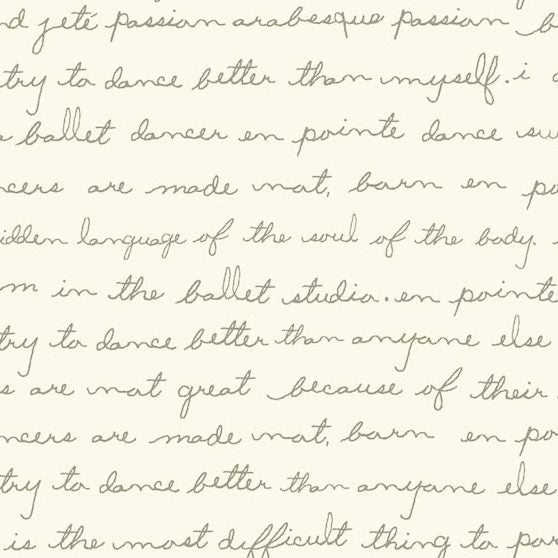 nd jeté passion arabesque passion b
try to dance better than myself. i d
a ballet dancer en pointe dance sw
ncers are made not, born en po
idden language of the soul of the body.
m in the ballet studio. en pointe
try to dance better than anyone else
s are not great because of their
ncers are made not, born en po
try to dance better than anyone else
is the most difficult thing to par